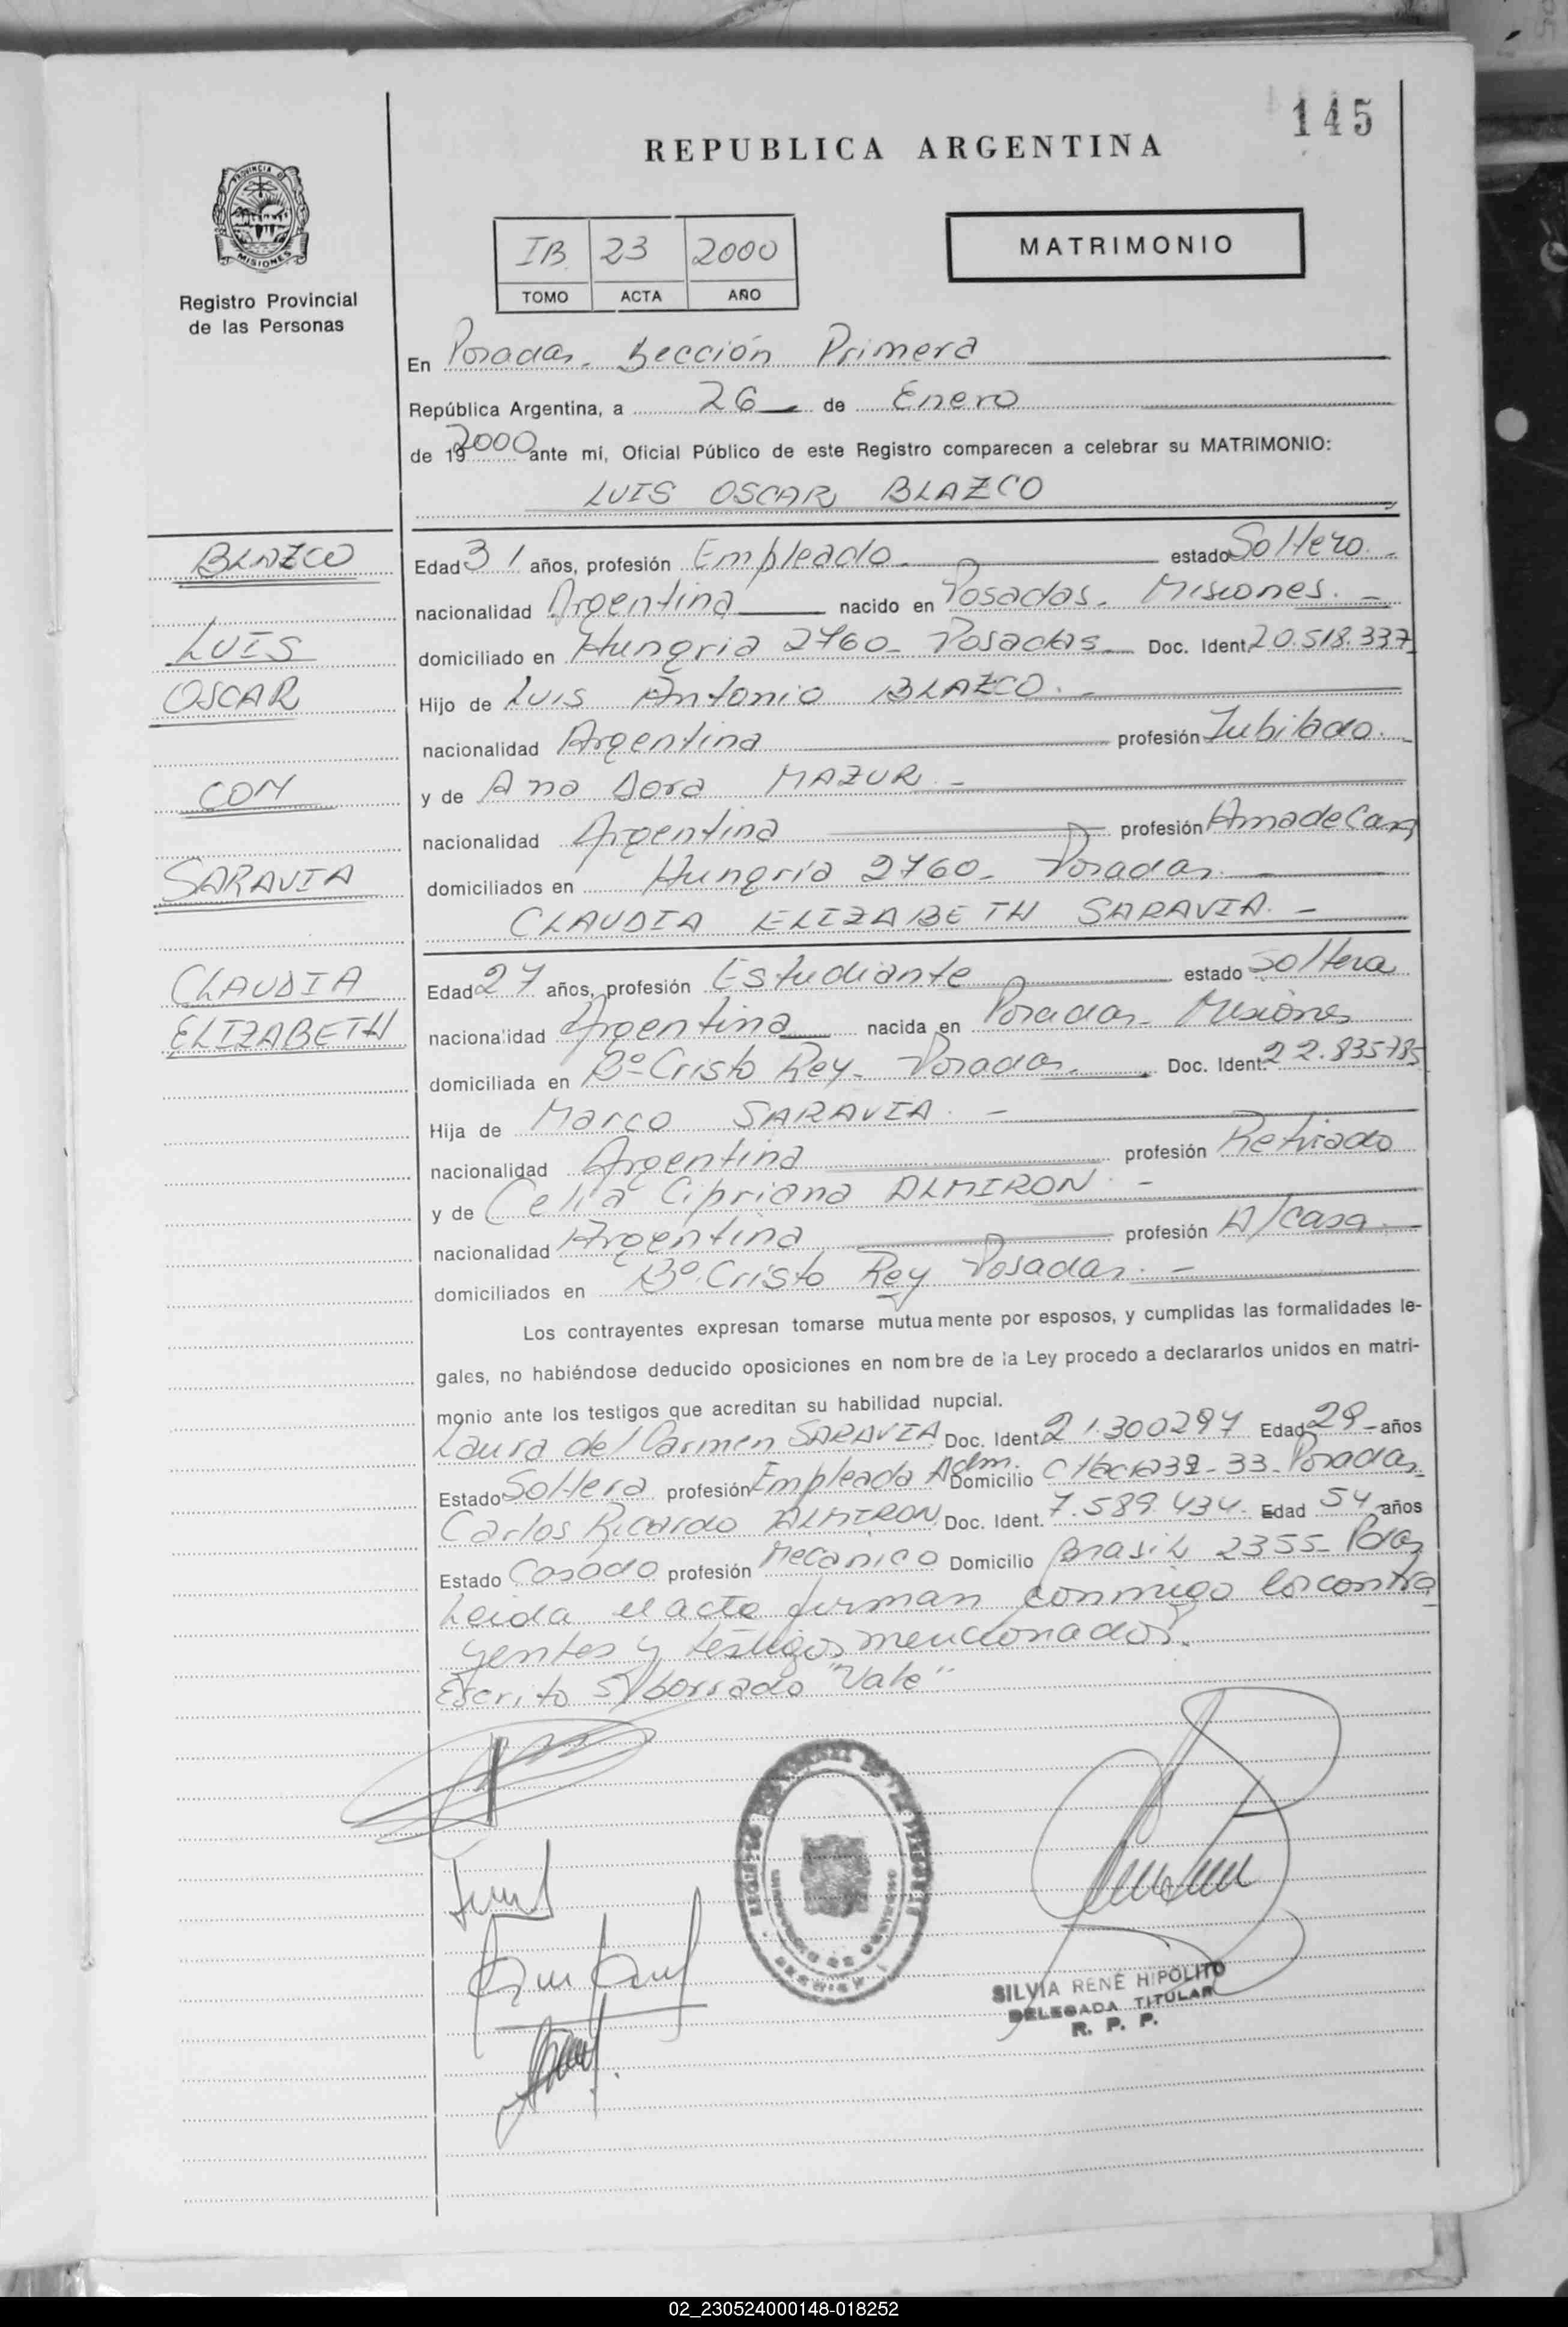 145
REPUBLICA ARGENTINA
PROVINCIA DE
MISIONES
Registro Provincial
de las Personas
IB 23 2000
TOMO ACTA AÑO
MATRIMONIO
En Posadas. Sección Primera
República Argentina, a 26 de Enero
de 19 2000 ante mí, Oficial Público de este Registro comparecen a celebrar su MATRIMONIO:
LUIS OSCAR BLAZCO
BLAZCO
LUIS
OSCAR
CON
SARAVIA
CLAUDIA
ELIZABETH
Edad 31 años, profesión Empleado. estado Soltero.
nacionalidad Argentina nacido en Posadas. Misiones.
domiciliado en Hungria 2760 Posadas Doc. Ident. 20.518.337
Hijo de Luis Antonio BLAZCO.
nacionalidad Argentina profesión Jubilado.
y de Ana Dora MAZUR
nacionalidad Argentina profesión Ama de Casa
domiciliados en Hungria 2760 Posadas.
CLAUDIA ELIZABETH SARAVIA.
Edad 27 años, profesión Estudiante estado Soltera
nacionalidad Argentina nacida en Posadas Misiones
domiciliada en Bº Cristo Rey. Posadas. Doc. Ident. 22.835785
Hija de Marco SARAVIA.
nacionalidad Argentina profesión Retirado
y de Celia Cipriana ALMIRON.
nacionalidad Argentina profesión A/casa
domiciliados en Bº Cristo Rey Posadas.
Los contrayentes expresan tomarse mutuamente por esposos, y cumplidas las formalidades le-
gales, no habiéndose deducido oposiciones en nombre de la Ley procedo a declararlos unidos en matri-
monio ante los testigos que acreditan su habilidad nupcial.
Laura del Carmen SARAVIA Doc. Ident. 21.300297 Edad 29 años
Estado Soltera profesión Empleada Adm. Domicilio 33 Posadas
Carlos Ricardo ALMIRON Doc. Ident. 7.589.434 Edad 54 años
Estado Casado profesión Mecanico Domicilio Brasil 2355 Pdas
Leida el acta firman conmigo los contra
yentes y testigos mencionados.
Escrito s/borrado "Vale"
SILVIA RENÉ HIPÓLITO
DELEGADA TITULAR
R. P. P.
02_230524000148-018252